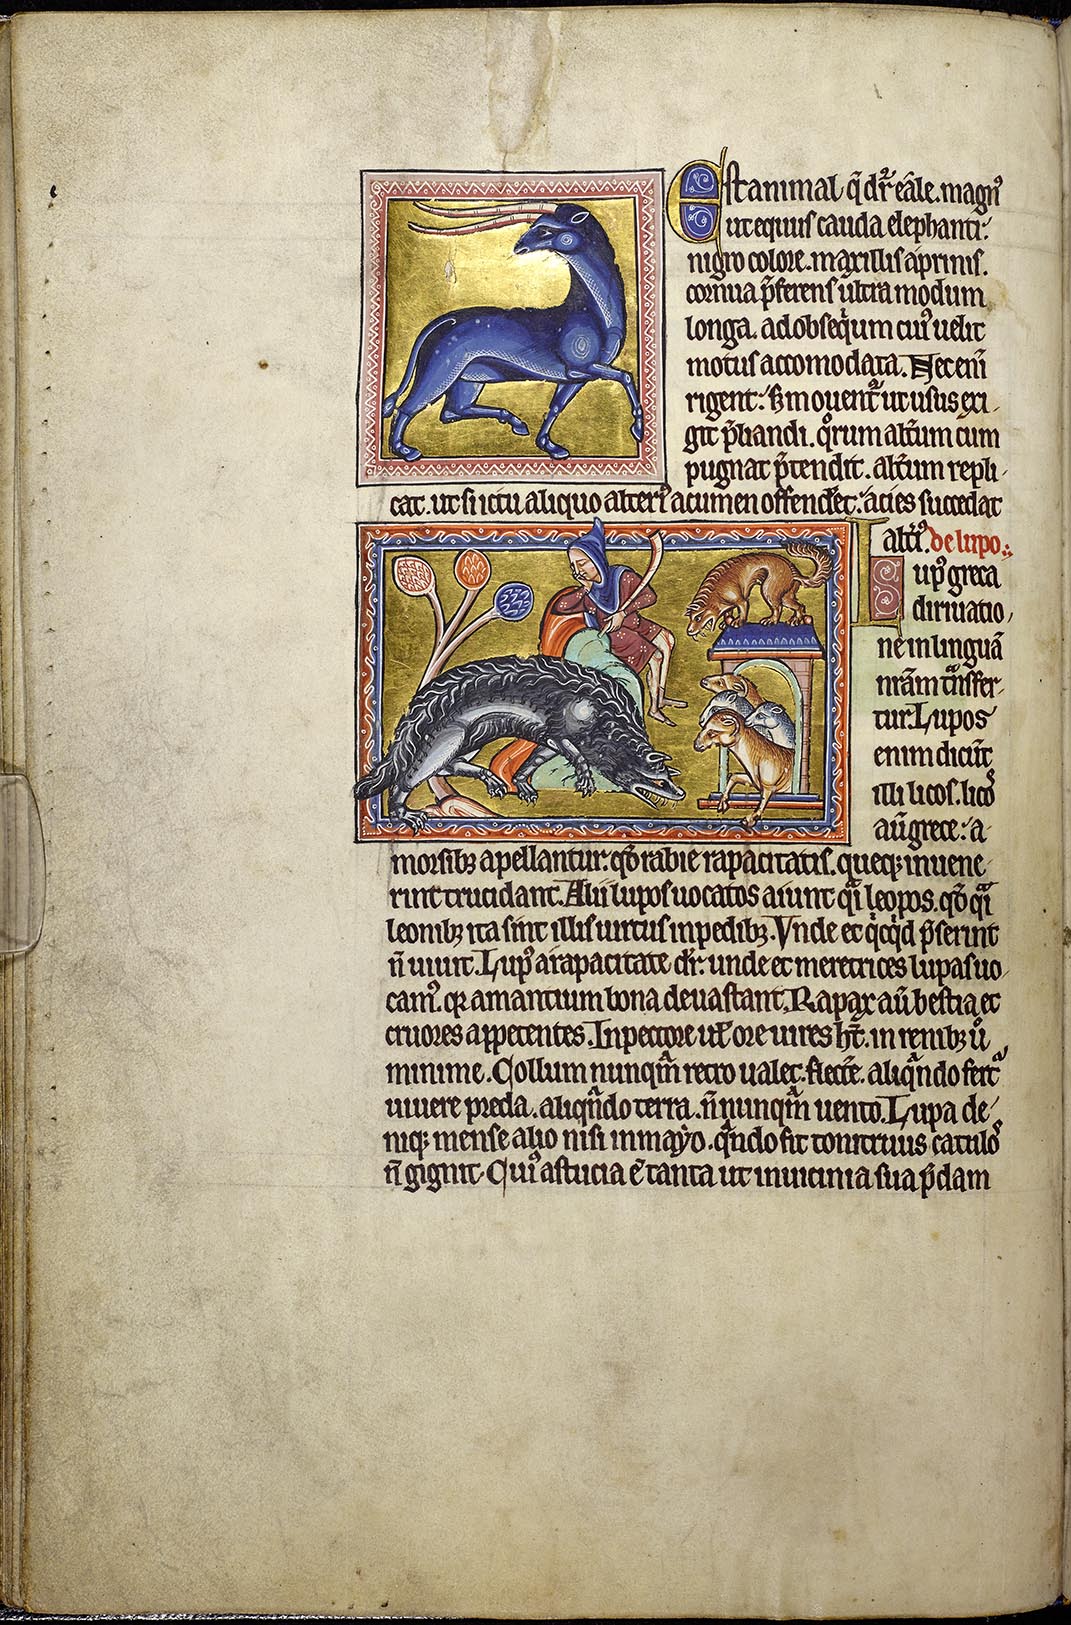 Est animal q̄ dr̄ eâle. magn᷒
ut equus cauda elephanti.
nigro colore. maxillis aprinis.
cornua p̄ferens ultra modum
longa. ad obseq̄um cui᷒ uelit
motus accomodata. Nec enī
rigent. s; mouent᷑ ut usus exi-
git p̄liandi. q°rum alt᷑um cum
pugnat p̄tendit. alt᷑um repli-
cat. ut si ictu aliquo alteri᷒ acumen offender̄t. acies succedat
alt᷑i᷒. de lupo.
Lup᷒ greca
diriuatio-
ne in linguā
nrām t̄nsfer-
tur. Lupos
enim dicūt
illi licos. lico᷒
aut̄ grece. a
morsib; apellantur. q°d rabie rapacitatis. queq; inuene-
rint trucidant. Alii lupos uocatos aiunt q̄i leopos. q°d q̄i
leonib; ita sint illis uirtus in pedib;. Vnde et q̇cq̇d p̄serint
n̄ uiuit. Lup᷒ a rapacitate dr̄. unde et meretrices lupas uo-
cam᷒. q; amantium bona deuastant. Rapax aut̄ bestia et
cruores appetentes. In pectore ut̄ ore uires ht̄. in renib; u°
minime. Collum nunq̄m retro ualet flectē. aliq̄ndo fert᷑
uiuere preda. aliq̄ndo terra. n̄nunq̄m uento. Lupa de-
niq; mense alio nisi in mayo. q̄ndo fit tonitruus catulo᷒
n̄ gignit. Cui᷒ astucia ē tanta ut in uicinia sua p̄dam